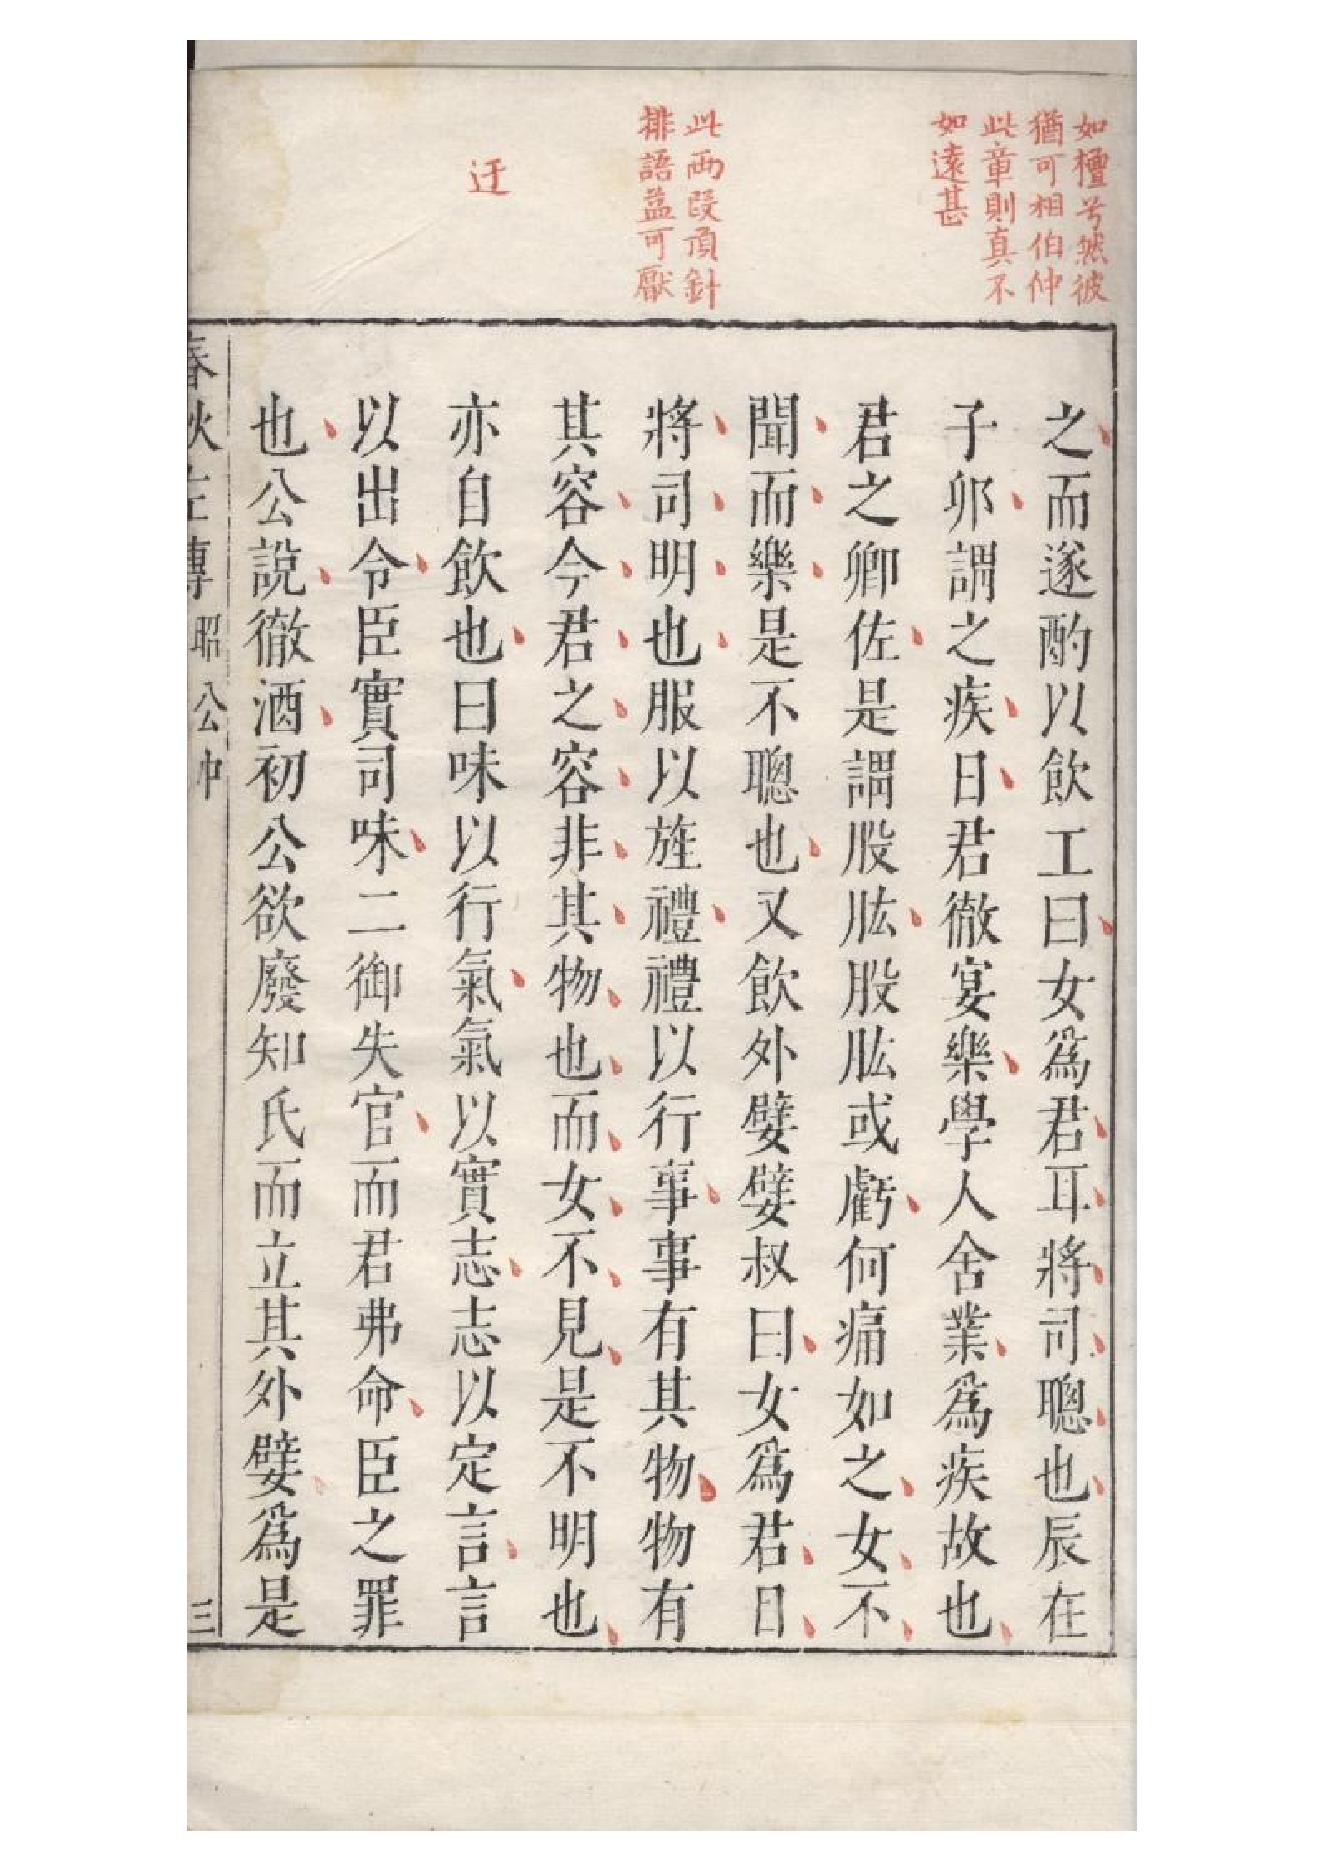 如檀弓然彼
猶可相伯仲
此章則真不
如遠甚
此兩段頂針
排語益可厭
迂
之而遂酌以飲工曰女爲君耳將司聰也辰在
子卯謂之疾日君徹宴樂學人舍業爲疾故也
君之卿佐是謂股肱股肱或虧何痛如之女不
聞而樂是不聰也又飲外嬖嬖叔曰女爲君目
將司明也服以旌禮禮以行事事有其物物有
其容今君之容非其物也而女不見是不明也
亦自飲也曰味以行氣氣以實志志以定言言
以出令臣實司味二御失官而君弗命臣之罪
也公說徹酒初公欲廢知氏而立其外嬖爲是
春秋左傳 昭公中 三